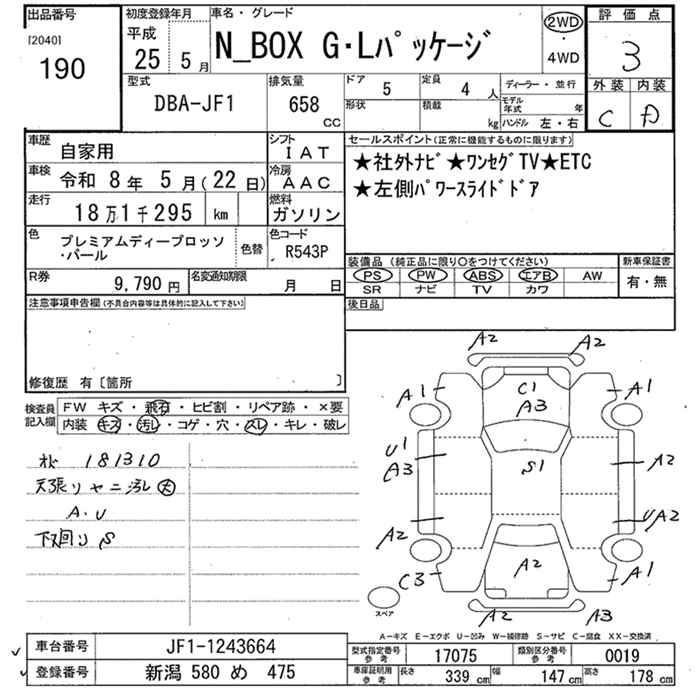 出品番号
[2040]
190
初度登録年月
平成
25 5 月
車名・グレード
N_BOX G・Lパッケージ
2WD
・
4WD
評価点
3
外装 内装
C D
型式
DBA-JF1
排気量
658
CC
ドア 5
形状
定員 4 人
積載 kg
ディーラー・並行
モデル年式 年
ハンドル 左・右
車歴 自家用
シフト IAT
車検 令和 8 年 5 月(22 日)
冷房 AAC
走行 18 万 1 千 295 km
燃料 ガソリン
色 プレミアムディープロッソ
・パール
色替
色コード R543P
R券 9,790 円
名変通知期限 月 日
セールスポイント(正常に機能するものに限ります)
★社外ナビ★ワンセグTV★ETC
★左側パワースライドドア
装備品 (純正品に限り○をつけてください)
PS PW ABS エアB AW
SR ナビ TV カワ
新車保証書
有・無
後日品
注意事項申告欄(不具合内容等は具体的に記入して下さい)
修復歴 有〔箇所 〕
検査員記入欄
FW キズ・飛石・ヒビ割・リペア跡・×要
内装 キズ・汚レ・コゲ・穴・スレ・キレ・破レ
181310
天張りヤニ汚レ大
A.U
下廻り S
A2 A2
A1 C1 A1
A3
U1
A3 S1 A2
A2 UA2
C3 A2 A1
A2 A3
スペア
A-キズ E-エクボ U-凹み W-補修跡 S-サビ C-腐食 XX-交換済
車台番号 JF1-1243664
登録番号 新潟 580 め 475
型式指定番号
参考
17075
類別区分番号
参考
0019
車庫証明用
参考
長さ 339 cm 幅 147 cm 高さ 178 cm